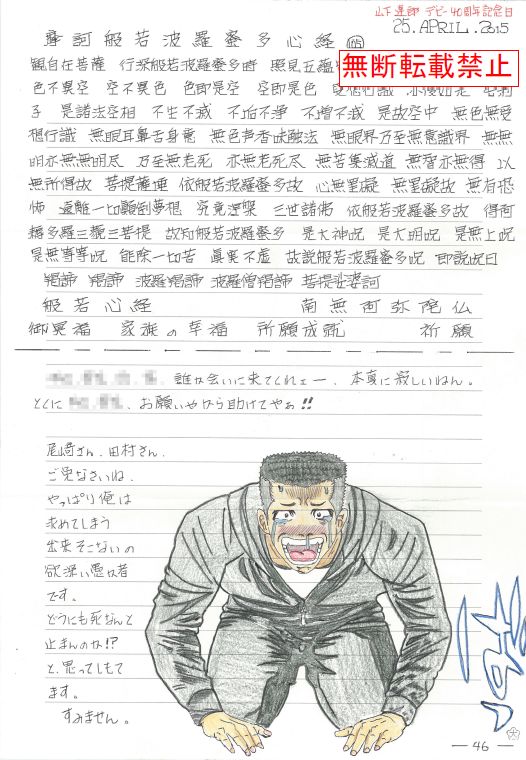 山下達郎 デビー40周年記念日
25.APRIL.2015
摩訶般若波羅蜜多心経
無断転載禁止
観自在菩薩 行深般若波羅蜜多時 照見五蘊
色不異空 空不異色 色即是空 空即是色 受想行識 亦復如是
子 是諸法空相 不生不滅 不垢不浄 不増不減 是故空中 無色無受
想行識 無眼耳鼻舌身意 無色声香味触法 無眼界乃至無意識界 無無
明亦無無明尽 乃至無老死 亦無老死尽 無苦集滅道 無智亦無得 以
無所得故 菩提薩埵 依般若波羅蜜多故 心無罣礙 無罣礙故 無有恐
怖 遠離一切顛倒夢想 究竟涅槃 三世諸佛 依般若波羅蜜多故 得阿
耨多羅三藐三菩提 故知般若波羅蜜多 是大神呪 是大明呪 是無上呪
是無等等呪 能除一切苦 真実不虚 故説般若波羅蜜多呪 即説呪曰
羯諦 羯諦 波羅羯諦 波羅僧羯諦 菩提娑婆訶
般若心経 南無阿弥陀仏
御冥福 家族の幸福 所願成就 祈願
誰か会いに来てくれェー、本真に寂しいねん。
とくに 、お願いやから助けてやぁ!!
尾崎さん、田村さん、
ご免なさいね、
やっぱり俺は
求めてしまう
出来そこないの
欲深い愚か者
です。
どうにも死なんと
止まんのか!?
と、思ってしもて
ます。
すみません。
— 46 —